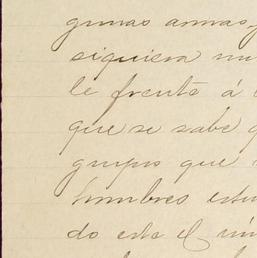 gunas armas,
siquiera nu
le frente á
que se sabe q
grupos que
hombres estu
do este el nú